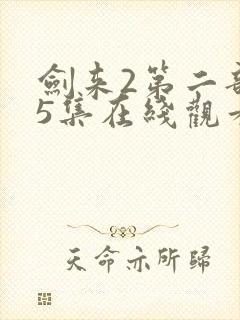 劍来2第二部
5集在綫觀看
天命亦所歸